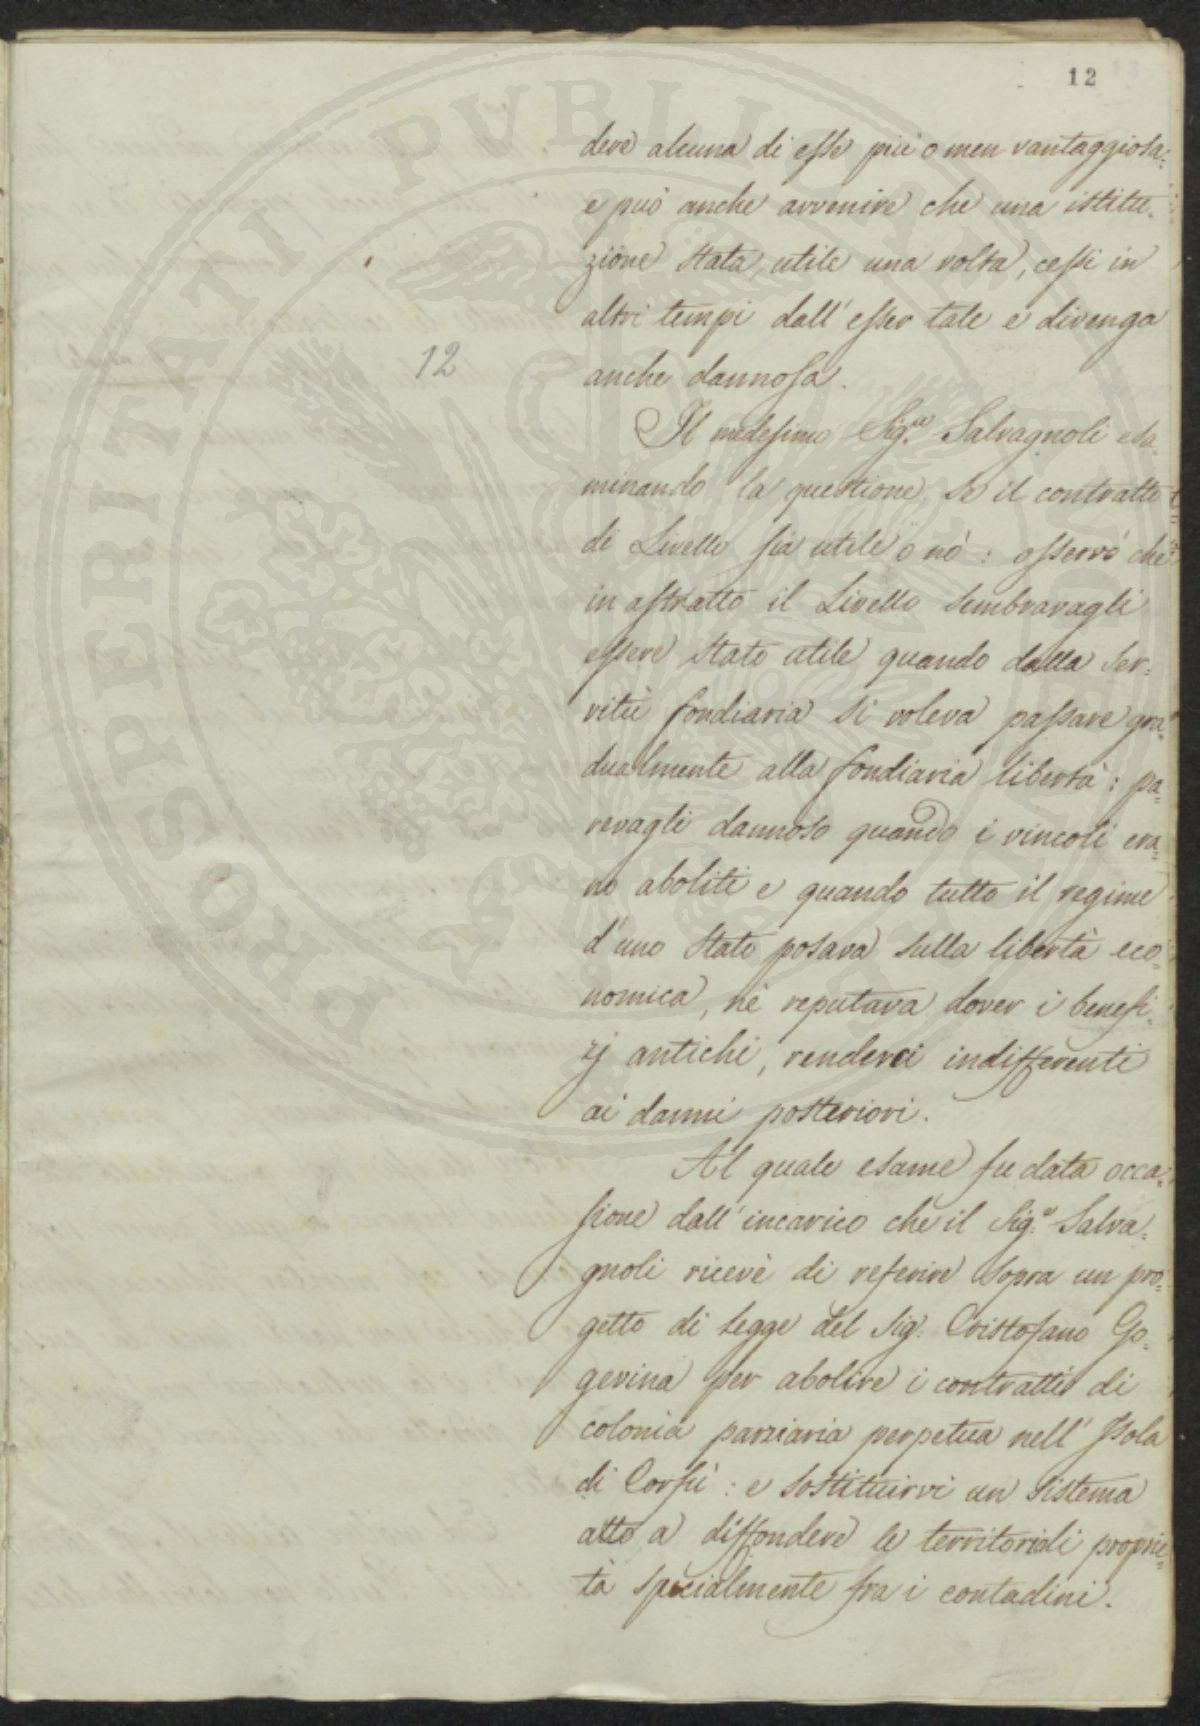 12
PROSPERITATI PVBLICAE
dere alcuna di esse più o men vantaggiosa:
e può anche avvenire che una istitu-
zione stata utile una volta, cessi in
altri tempi dall'esser tale e divenga
anche dannosa.
12
Il medesimo Sig.r Salvagnoli esa-
minando la questione, se il contratto
di Livello sia utile o nò: osservò che
in astratto il Livello sembravagli
essere stato utile quando dalla ser-
vitù fondiaria si voleva passare gra-
dualmente alla fondiaria libertà: pa-
revagli dannoso quando i vincoli era-
no aboliti e quando tutto il regime
d'uno Stato posava sulla libertà eco-
nomica, nè reputava dover i benefi-
zj antichi, renderci indifferenti
ai danni posteriori.
Al quale esame fu data occa-
sione dall'incarico che il Sig.r Salva-
gnoli ricevè di referire sopra un pro-
getto di legge del Sig. Cristofano Go-
gerina per abolire i contratti di
colonia parziaria perpetua nell'Isola
di Corfù: e sostituirvi un sistema
atto a diffondere le territoriali proprie-
tà specialmente fra i contadini.